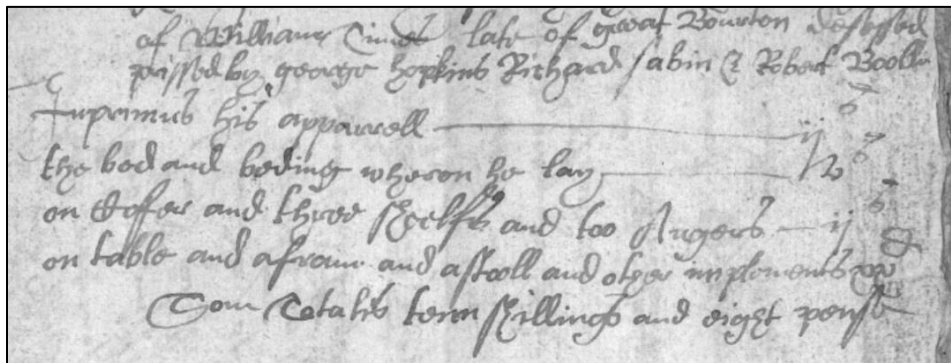 of William late of great Bourton desessed
prissed by george hopkins Richard sabin & Robert
Inprimus his apparrell ij s
the bed and beding wheron he lay v s
on Coffer and three sheelfs and too Augers ij s
on table and a frame and a stooll and other implements xx d
Som totalis tenn shillings and eight pense